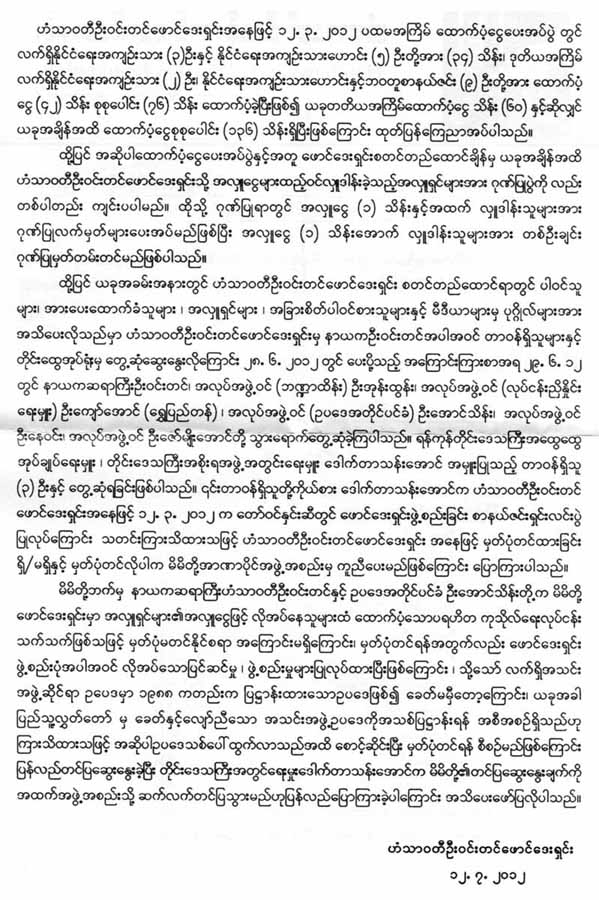 ဟံသာဝတီဦးဝင်းတင်ဖောင်ဒေးရှင်းအနေဖြင့် ၁၂. ၃. ၂၀၁၂ ပထမအကြိမ် ထောက်ပံ့ငွေပေးအပ်ပွဲ တွင်
လက်ရှိနိုင်ငံရေးအကျဉ်းသား (၃)ဦးနှင့် နိုင်ငံရေးအကျဉ်းသားဟောင်း (၅) ဦးတို့အား (၃၄) သိန်း၊ ဒုတိယအကြိမ်
လက်ရှိနိုင်ငံရေးအကျဉ်းသား (၂) ဦး၊ နိုင်ငံရေးအကျဉ်းသားဟောင်းနှင့်ဘဝတူစာနယ်ဇင်း (၉) ဦးတို့အား ထောက်ပံ့
ငွေ (၄၂) သိန်း စုစုပေါင်း (၇၆) သိန်း ထောက်ပံ့ခဲ့ပြီးဖြစ်၍ ယခုတတိယအကြိမ်ထောက်ပံ့ငွေ သိန်း (၆၀) နှင့်ဆိုလျှင်
ယခုအချိန်အထိ ထောက်ပံ့ငွေစုစုပေါင်း (၁၃၆) သိန်းရှိပြီဖြစ်ကြောင်း ထုတ်ပြန်ကြေညာအပ်ပါသည်။
ထို့ပြင် အဆိုပါထောက်ပံ့ငွေပေးအပ်ပွဲနှင့်အတူ ဖောင်ဒေးရှင်းစတင်တည်ထောင်ချိန်မှ ယခုအချိန်အထိ
ဟံသာဝတီဦးဝင်းတင်ဖောင်ဒေးရှင်းသို့ အလှူငွေများထည့်ဝင်လှူဒါန်းခဲ့သည့်အလှူရှင်များအား ဂုဏ်ပြုပွဲကို လည်း
တစ်ပါတည်း ကျင်းပပါမည်။ ထိုသို့ ဂုဏ်ပြုရာတွင် အလှူငွေ (၁) သိန်းနှင့်အထက် လှူဒါန်းသူများအား
ဂုဏ်ပြုလက်မှတ်များပေးအပ်မည်ဖြစ်ပြီး အလှူငွေ (၁) သိန်းအောက် လှူဒါန်းသူများအား တစ်ဦးချင်း
ဂုဏ်ပြုမှတ်တမ်းတင်မည်ဖြစ်ပါသည်။
ထို့ပြင် ယခုအခမ်းအနားတွင် ဟံသာဝတီဦးဝင်းတင်ဖောင်ဒေးရှင်း စတင်တည်ထောင်ရာတွင် ပါဝင်သူ
များ၊ အားပေးထောက်ခံသူများ ၊ အလှူရှင်များ ၊ အခြားစိတ်ပါဝင်စားသူများနှင့် မီဒီယာများမှ ပုဂ္ဂိုလ်များအား
အသိပေးလိုသည်မှာ ဟံသာဝတီဦးဝင်းတင်ဖောင်ဒေးရှင်းမှ နာယကဦးဝင်းတင်အပါအဝင် တာဝန်ရှိသူများနှင့်
တိုင်းထွေအုပ်ရုံးမှ တွေ့ဆုံဆွေးနွေးလိုကြောင်း ၂၈. ၆. ၂၀၁၂ တွင် ပေးပို့သည့် အကြောင်းကြားစာအရ ၂၉. ၆. ၁၂
တွင် နာယကဆရာကြီးဦးဝင်းတင်၊ အလုပ်အဖွဲ့ဝင် (ဘဏ္ဍာထိန်း) ဦးအုန်းထွန်း၊ အလုပ်အဖွဲ့ဝင် (လုပ်ငန်းညှိနှိုင်း
ရေးမှူး) ဦးကျော်အောင် (ရွှေပြည်တန်) ၊ အလုပ်အဖွဲ့ဝင် (ဥပဒေအတိုင်ပင်ခံ) ဦးအောင်သိန်း၊ အလုပ်အဖွဲ့ဝင်
ဦးနေဝင်း၊ အလုပ်အဖွဲ့ဝင် ဦးဇော်မျိုးအောင်တို့ သွားရောက်တွေ့ဆုံခဲ့ကြပါသည်။ ရန်ကုန်တိုင်းဒေသကြီးအထွေထွေ
အုပ်ချုပ်ရေးမှူး ၊ တိုင်းဒေသကြီးအစိုးရအဖွဲ့အတွင်းရေးမှူး ဒေါက်တာသန်းအောင် အမှူးပြုသည့် တာဝန်ရှိသူ
(၃) ဦးနှင့် တွေ့ဆုံရခြင်းဖြစ်ပါသည်။ ၎င်းတာဝန်ရှိသူတို့ကိုယ်စား ဒေါက်တာသန်းအောင်က ဟံသာဝတီဦးဝင်းတင်
ဖောင်ဒေးရှင်းအနေဖြင့် ၁၂. ၃. ၂၀၁၂ က တော်ဝင်နှင်းဆီတွင် ဖောင်ဒေးရှင်းဖွဲ့စည်းခြင်း စာနယ်ဇင်းရှင်းလင်းပွဲ
ပြုလုပ်ကြောင်း သတင်းကြားသိထားသဖြင့် ဟံသာဝတီဦးဝင်းတင်ဖောင်ဒေးရှင်း အနေဖြင့် မှတ်ပုံတင်ထားခြင်း
ရှိ/မရှိနှင့် မှတ်ပုံတင်လိုပါက မိမိတို့အာဏာပိုင်အဖွဲ့အစည်းမှ ကူညီပေးမည်ဖြစ်ကြောင်း ပြောကြားပါသည်။
မိမိတို့ဘက်မှ နာယကဆရာကြီးဟံသာဝတီဦးဝင်းတင်နှင့် ဥပဒေအတိုင်ပင်ခံ ဦးအောင်သိန်းတို့က မိမိတို့
ဖောင်ဒေးရှင်းမှာ အလှူရှင်များ၏အလှူငွေဖြင့် လိုအပ်နေသူများထံ ထောက်ပံ့သောပရဟိတ ကုသိုလ်ရေးလုပ်ငန်း
သက်သက်ဖြစ်သဖြင့် မှတ်ပုံမတင်နိုင်စရာ အကြောင်းမရှိကြောင်း၊ မှတ်ပုံတင်ရန်အတွက်လည်း ဖောင်ဒေးရှင်း
ဖွဲ့စည်းပုံအပါအဝင် လိုအပ်သောပြင်ဆင်မှု ၊ ဖွဲ့စည်းမှုများပြုလုပ်ထားပြီးဖြစ်ကြောင်း ၊ သို့သော် လက်ရှိအသင်း
အဖွဲ့ဆိုင်ရာ ဥပဒေမှာ ၁၉၈၈ ကတည်းက ပြဋ္ဌာန်းထားသောဥပဒေဖြစ်၍ ခေတ်မမှီတော့ကြောင်း၊ ယခုအခါ
ပြည်သူ့လွှတ်တော် မှ ခေတ်နှင့်လျော်ညီသော အသင်းအဖွဲ့ဥပဒေကိုအသစ်ပြဋ္ဌာန်းရန် အစီအစဉ်ရှိသည်ဟု
ကြားသိထားသဖြင့် အဆိုပါဥပဒေသစ်ပေါ်ထွက်လာသည်အထိ စောင့်ဆိုင်းပြီး မှတ်ပုံတင်ရန် စီစဉ်မည်ဖြစ်ကြောင်း
ပြန်လည်တင်ပြဆွေးနွေးခဲ့ပြီး တိုင်းဒေသကြီးအတွင်းရေးမှူးဒေါက်တာသန်းအောင်က မိမိတို့၏တင်ပြဆွေးနွေးချက်ကို
အထက်အဖွဲ့အစည်းသို့ ဆက်လက်တင်ပြသွားမည်ဟုပြန်လည်ပြောကြားခဲ့ပါကြောင်း အသိပေးဖော်ပြလိုပါသည်။
ဟံသာဝတီဦးဝင်းတင်ဖောင်ဒေးရှင်း
၁၂. ၇. ၂၀၁၂